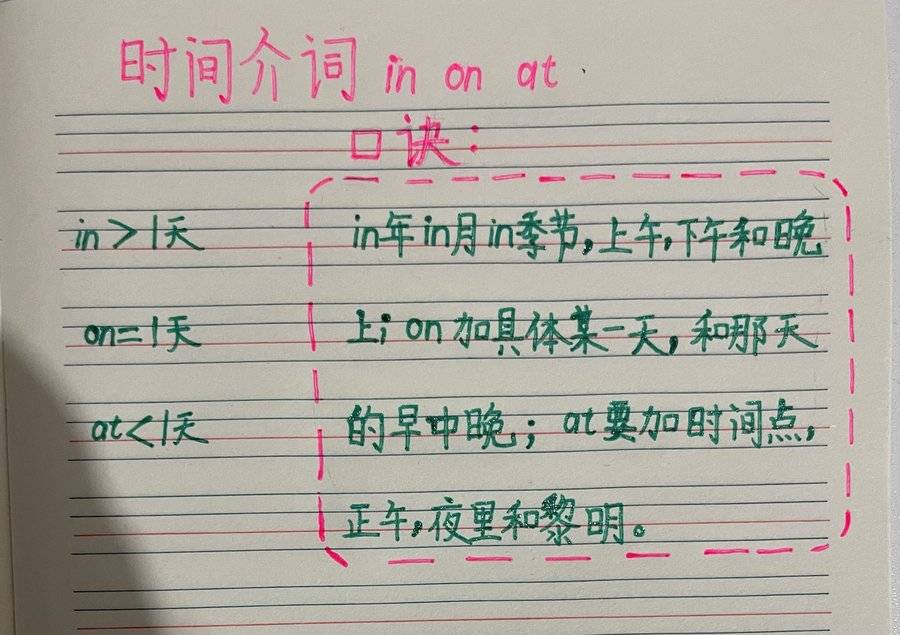 时间介词 in on at
口诀：
in＞1天
in年in月in季节，上午，下午和晚
on=1天
上；on加具体某一天，和那天
at＜1天
的早中晚；at要加时间点，
正午，夜里和黎明。